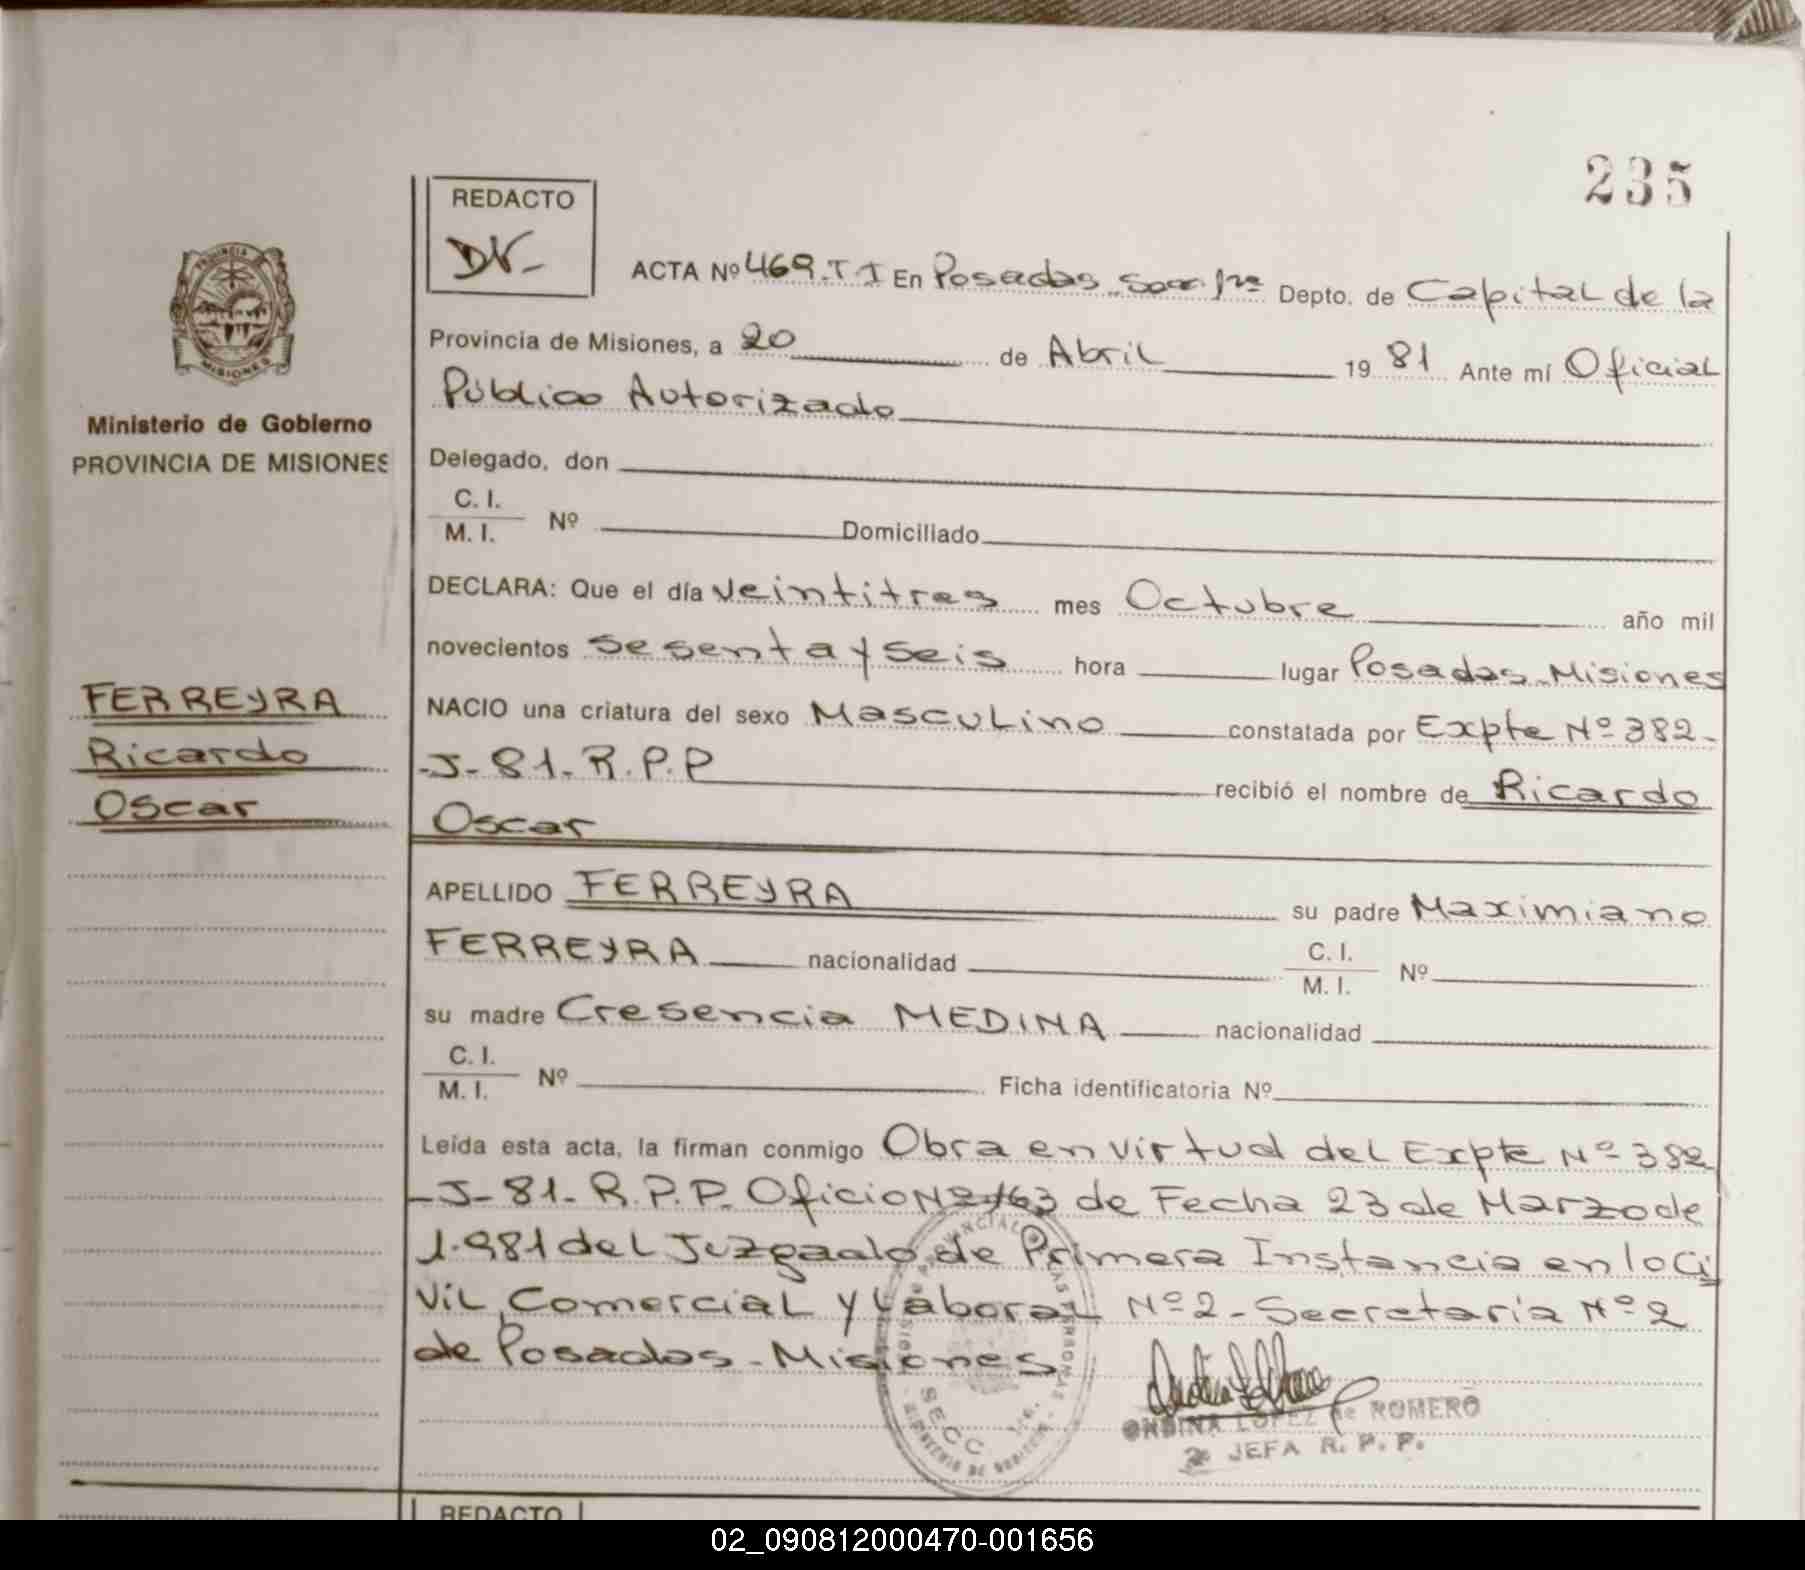 235
REDACTO
DV-
ACTA Nº 469-T I En Posadas Secc. 1ra Depto. de Capital de la
Provincia de Misiones, a 20 de Abril 1981 Ante mí Oficial
Público Autorizado
Ministerio de Gobierno
PROVINCIA DE MISIONES
Delegado, don
C. I.
M. I. Nº Domiciliado
DECLARA: Que el día veintitres mes Octubre año mil
novecientos sesenta y seis hora lugar Posadas-Misiones
FERREYRA
Ricardo
Oscar
NACIO una criatura del sexo Masculino constatada por Expte Nº 382-
-J-81-R.P.P recibió el nombre de Ricardo
Oscar
APELLIDO FERREYRA su padre Maximiano
FERREYRA nacionalidad C. I. M. I. Nº
su madre Cresencia MEDINA nacionalidad
C. I.
M. I. Nº Ficha identificatoria Nº
Leída esta acta, la firman conmigo Obra en virtud del Expte Nº 382
-J-81-R.P.P. Oficio Nº 163 de Fecha 23 de Marzo de
1.981 del Juzgado de Primera Instancia en lo Ci
vil, Comercial y Laboral Nº 2-Secretaría Nº 2
de Posadas-Misiones
SECC 1ra.
ONDINA LOPEZ de ROMERO
JEFA R. P. P.
REDACTO
02_090812000470-001656